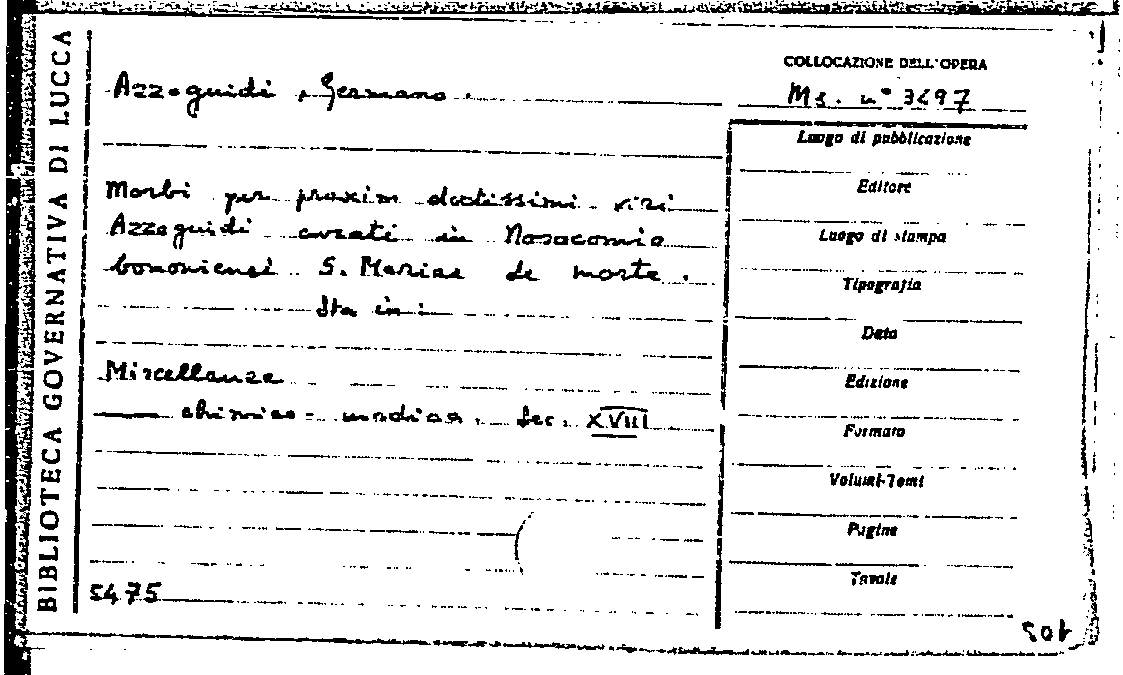 BIBLIOTECA GOVERNATIVA DI LUCCA
Azzoguidi, Germano.
Morbi per proxim doctissimi viri
Azzoguidi curati in Nosocomio
bononiensi S. Mariae de morte.
Sta in:
Miscellanee
chimico-mediche. Sec. XVIII
5475
COLLOCAZIONE DELL'OPERA
Ms. n° 3497
Luogo di pubblicazione
Editore
Luogo di stampa
Tipografia
Data
Edizione
Formato
Volumi-Tomi
Pagine
Tavole